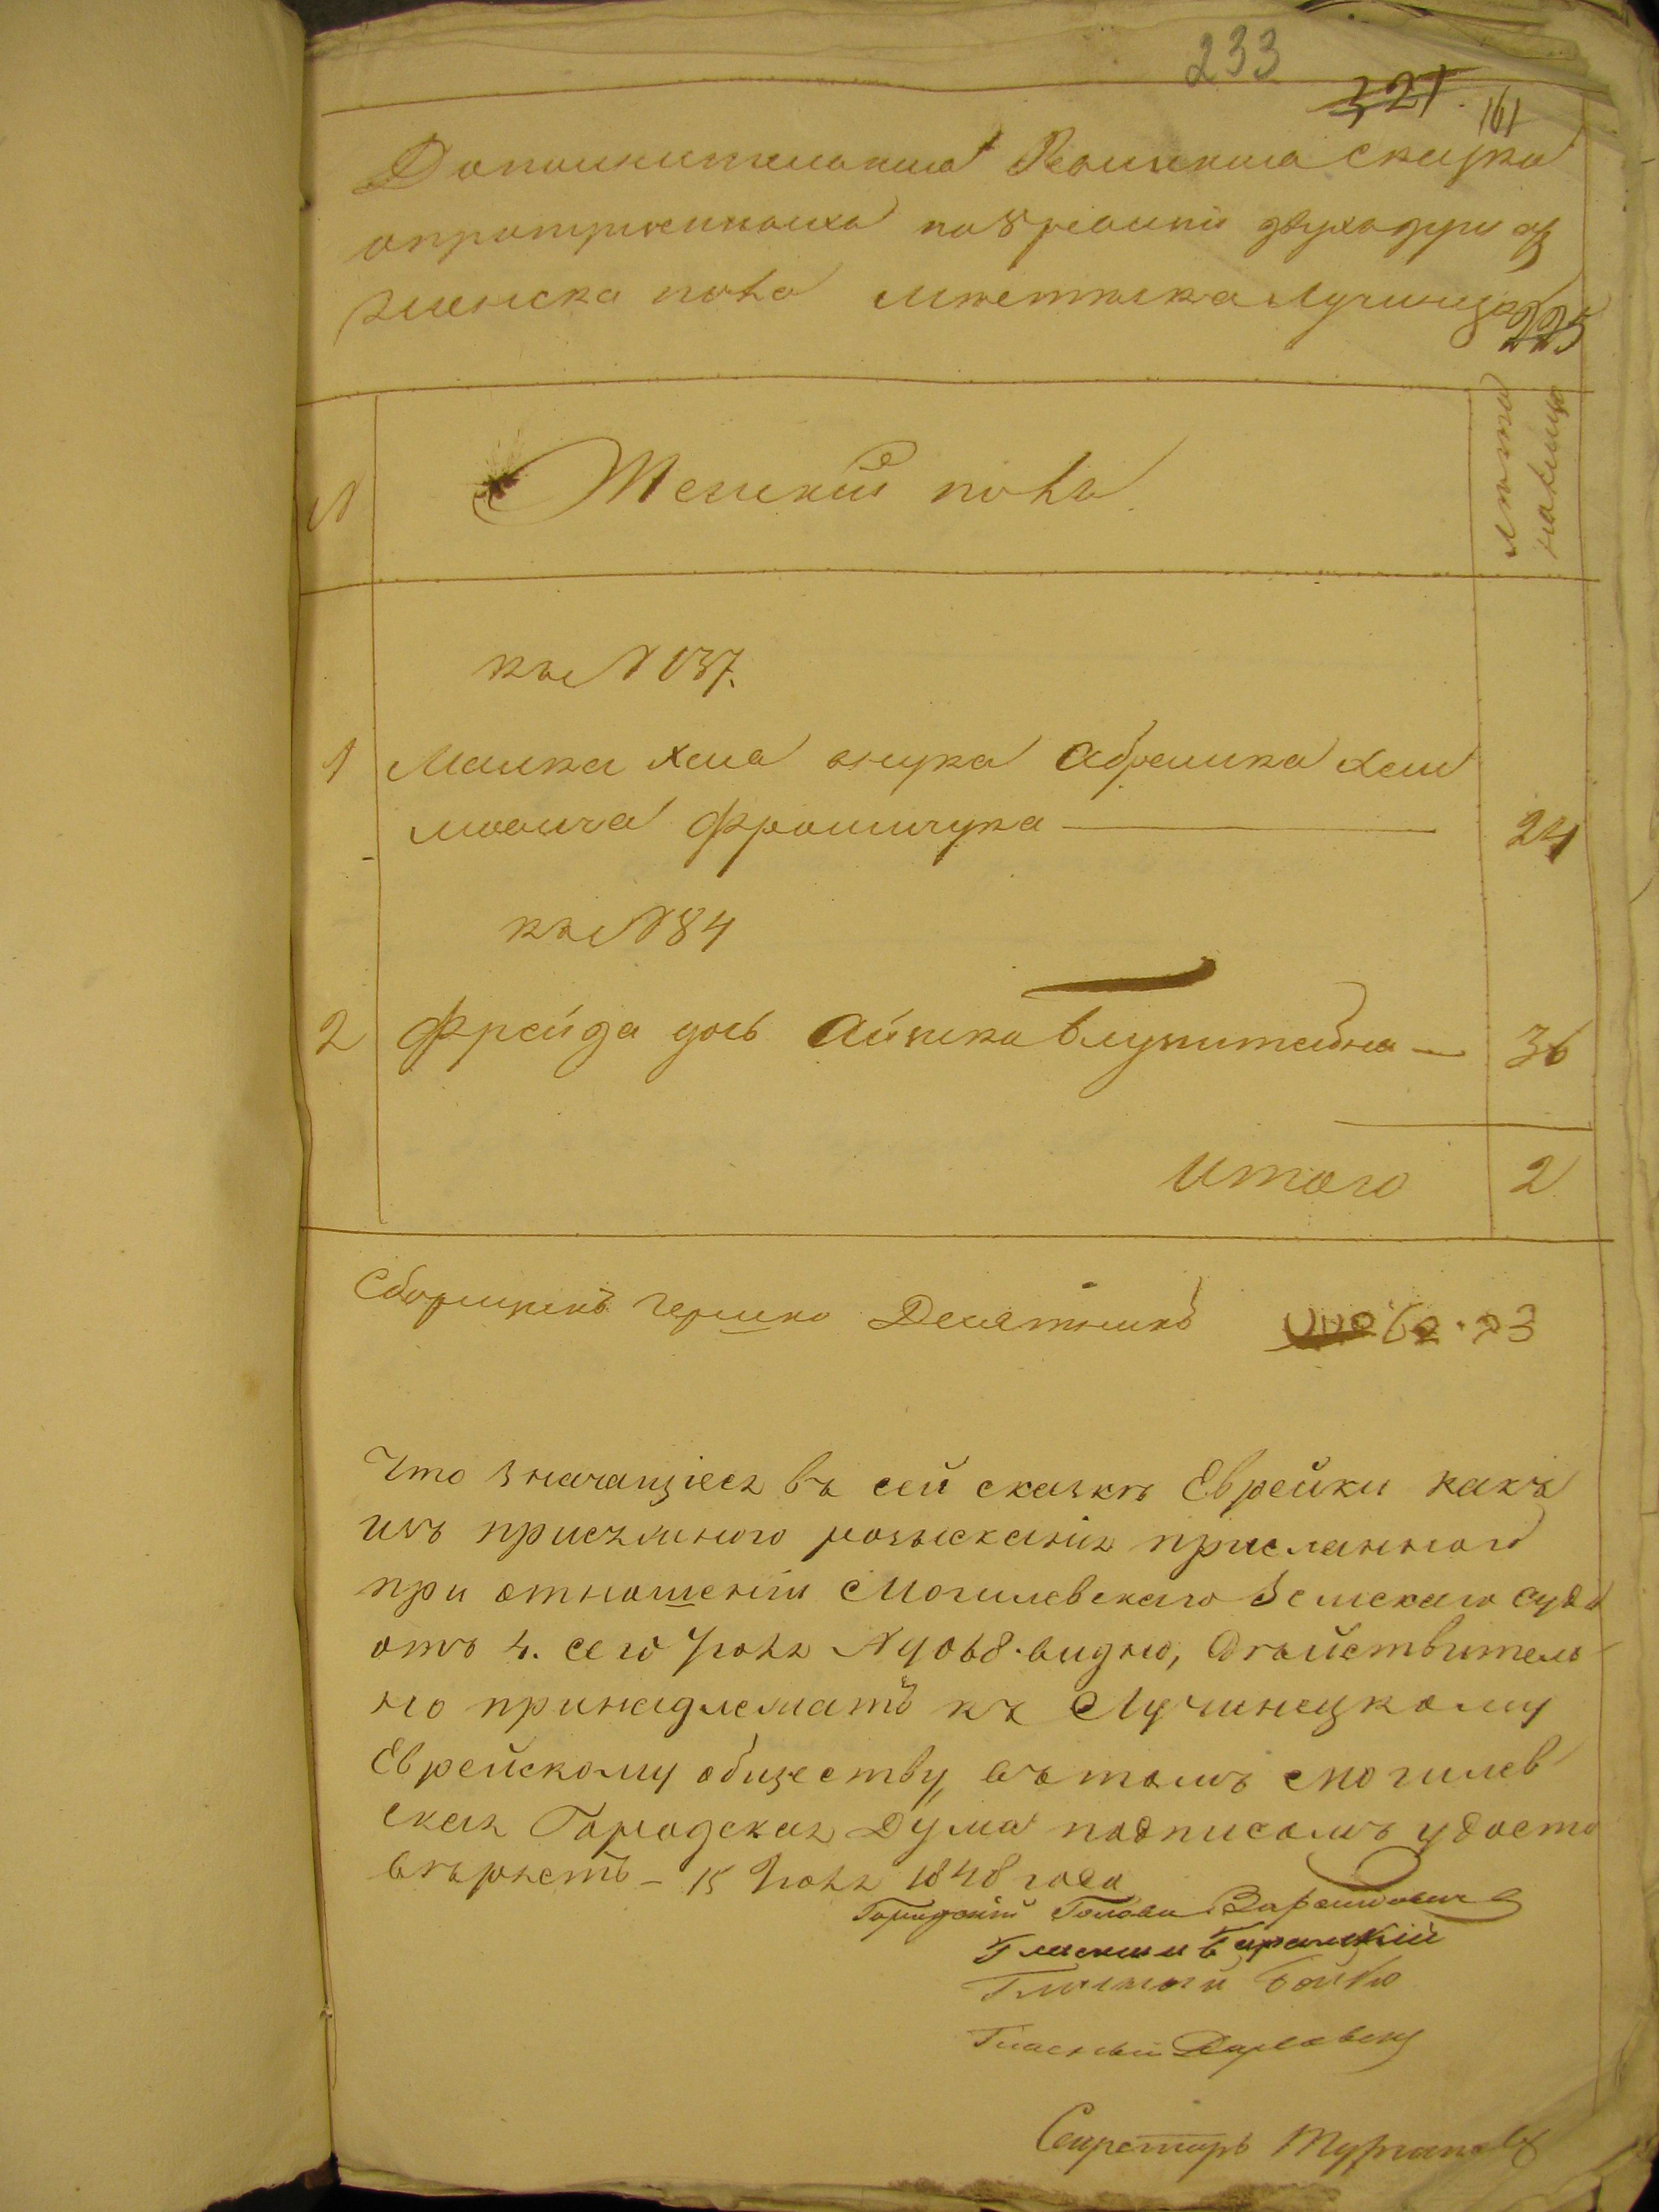 233
321. 161
Дополнительная Ревизская сказка
опропущенныхъ по 8 ревизіи двухъ душ
женска пола мѣстечка Лучинца
№
Женскій полъ
лѣта
къ № 137.
1 Малка Хая внука Абрамка Хаи
мовича Фроимчука — 24
къ № 84
2 Фрейда дочь Айзика Блувштейна — 36
Итого 2
Сборщикъ Гершко Десятникъ
Что значащіеся въ сей сказкѣ Еврейки какъ
изъ розысканія присланного
при отношеніи Могилевскаго Земскаго суда
отъ 4. сего Іюля № 9068. видно, дѣйствитель
но принадлежатъ къ Лучинецкому
Еврейскому обществу, въ томъ Могилев
ская Городская Дума подписомъ удосто
вѣряетъ — 15 Іюля 1848 года
Городской Голова
Гласный
Гласный Бойко
Гласный
Секретарь